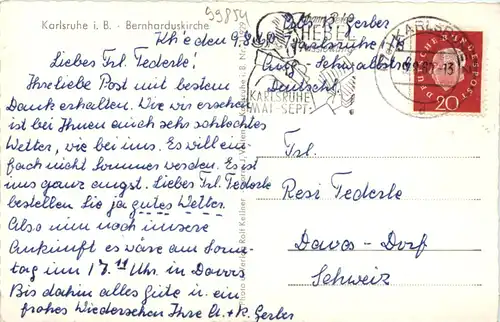 Karlsruhe i. B. - Bernharduskirche
99854
Kh'e den 9.8.60
Liebes Frl. Federle!
Ihre liebe Post mit bestem
Dank erhalten. Wie wir ersehen
ist bei Ihnen auch sehr schlechtes
Wetter, wie bei uns. Es will ein-
fach nicht Sommer werden. Es ist
uns ganz angst. Liebes Frl. Federle
bestellen Sie ja gutes Wetter.
Also nun noch unsere
Ankunft es wäre am Sonn-
tag um 17.11 Uhr in Davos
Bis dahin alles gute u. ein
frohes Wiedersehen Ihre A. + K. Gerber
Gerber
Karlsruhe
Deutschl.
HEBEL
KARLSRUHE
MAI SEPT.
DEUTSCHE BUNDESPOST
20
Frl.
Resi Federle
Davos-Dorf
Schweiz